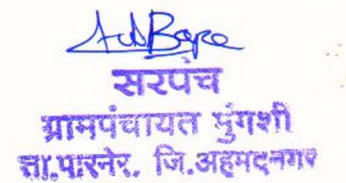 सरपंच
ग्रामपंचायत मुंगशी
ता.पारनेर, जि.अहमदनगर